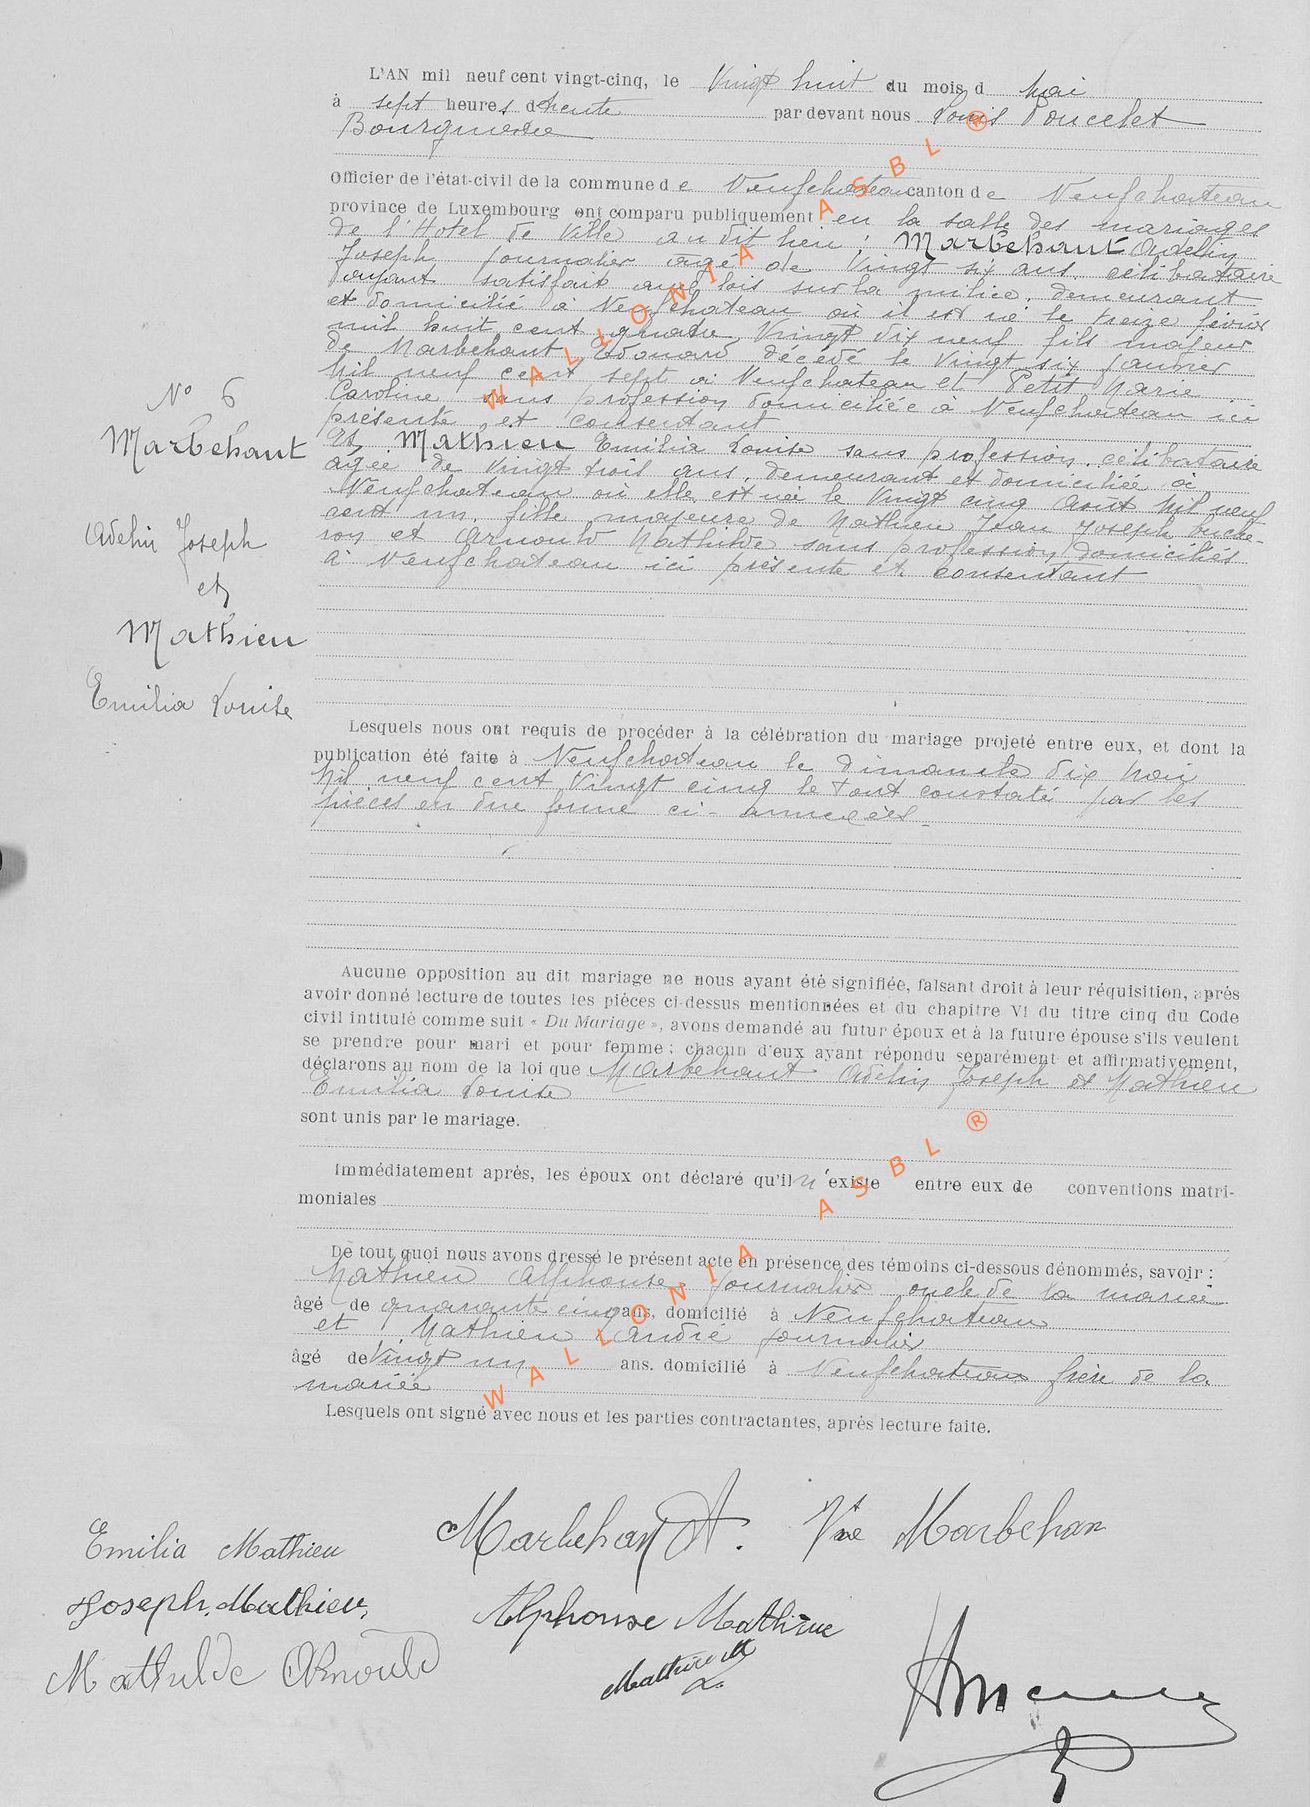 L'AN mil neuf cent vingt-cinq, le Vingt huit du mois d mai
à sept heures d trente par devant nous Louis Poncelet
Bourgmestre
Officier de l'état-civil de la commune de Neufchateau canton de Neufchateau
province de Luxembourg ont comparu publiquement en la salle des mariages
de l'Hotel de Ville au dit lieu : Marbehant Adelin
Joseph journalier agé de Vingt six ans célibataire
ayant satisfait aux lois sur la milice, demeurant
et domicilié à Neufchateau où il est né le treize février
mil huit cent quatre Vingt dix neuf fils majeur
de Marbehant Edouard décédé le Vingt six janvier
Mil neuf cent sept à Neufchateau et Petit Marie
Caroline sans profession domiciliée à Neufchateau ici
présente et consentant
Et Mathieu Emilia Louise sans profession, célibataire
agée de Vingt trois ans, demeurant et domiciliée à
Neufchateau où elle est née le Vingt cinq Août Mil neuf
cent un, fille majeure de Mathieu Jean Joseph buche-
ron et Arnould Mathilde sans profession domiciliés
à Neufchateau ici présente et consentant
N° 6
Marbehant
Adelin Joseph
et
Mathieu
Emilia Louise
Lesquels nous ont requis de procéder à la célébration du mariage projeté entre eux, et dont la
publication été faite à Neufchateau le dimanche dix Mai
Mil neuf cent Vingt cinq le tout constaté par les
pièces en due forme ci-annexées.
Aucune opposition au dit mariage ne nous ayant été signifiée, faisant droit à leur réquisition, après
avoir donné lecture de toutes les pièces ci-dessus mentionnées et du chapitre VI du titre cinq du Code
civil intitulé comme suit « Du Mariage », avons demandé au futur époux et à la future épouse s'ils veulent
se prendre pour mari et pour femme ; chacun d'eux ayant répondu séparément et affirmativement,
déclarons au nom de la loi que Marbehant Adelin Joseph et Mathieu
Emilia Louise
sont unis par le mariage.
Immédiatement après, les époux ont déclaré qu'il n'existe entre eux de conventions matri-
moniales
De tout quoi nous avons dressé le présent acte en présence des témoins ci-dessous dénommés, savoir :
Mathieu Alphonse, journalier oncle de la mariée
âgé de quarante cinq ans, domicilié à Neufchateau
et Mathieu André journalier
âgé de Vingt un ans. domicilié à Neufchateau frère de la
mariée
Lesquels ont signé avec nous et les parties contractantes, après lecture faite.
Marbehant A. Vve Marbehan
Emilia Mathieu
Joseph Mathieu
Alphonse Mathieu
Mathilde Arnould
WALLONIA ASBL ®
WALLONIA ASBL ®